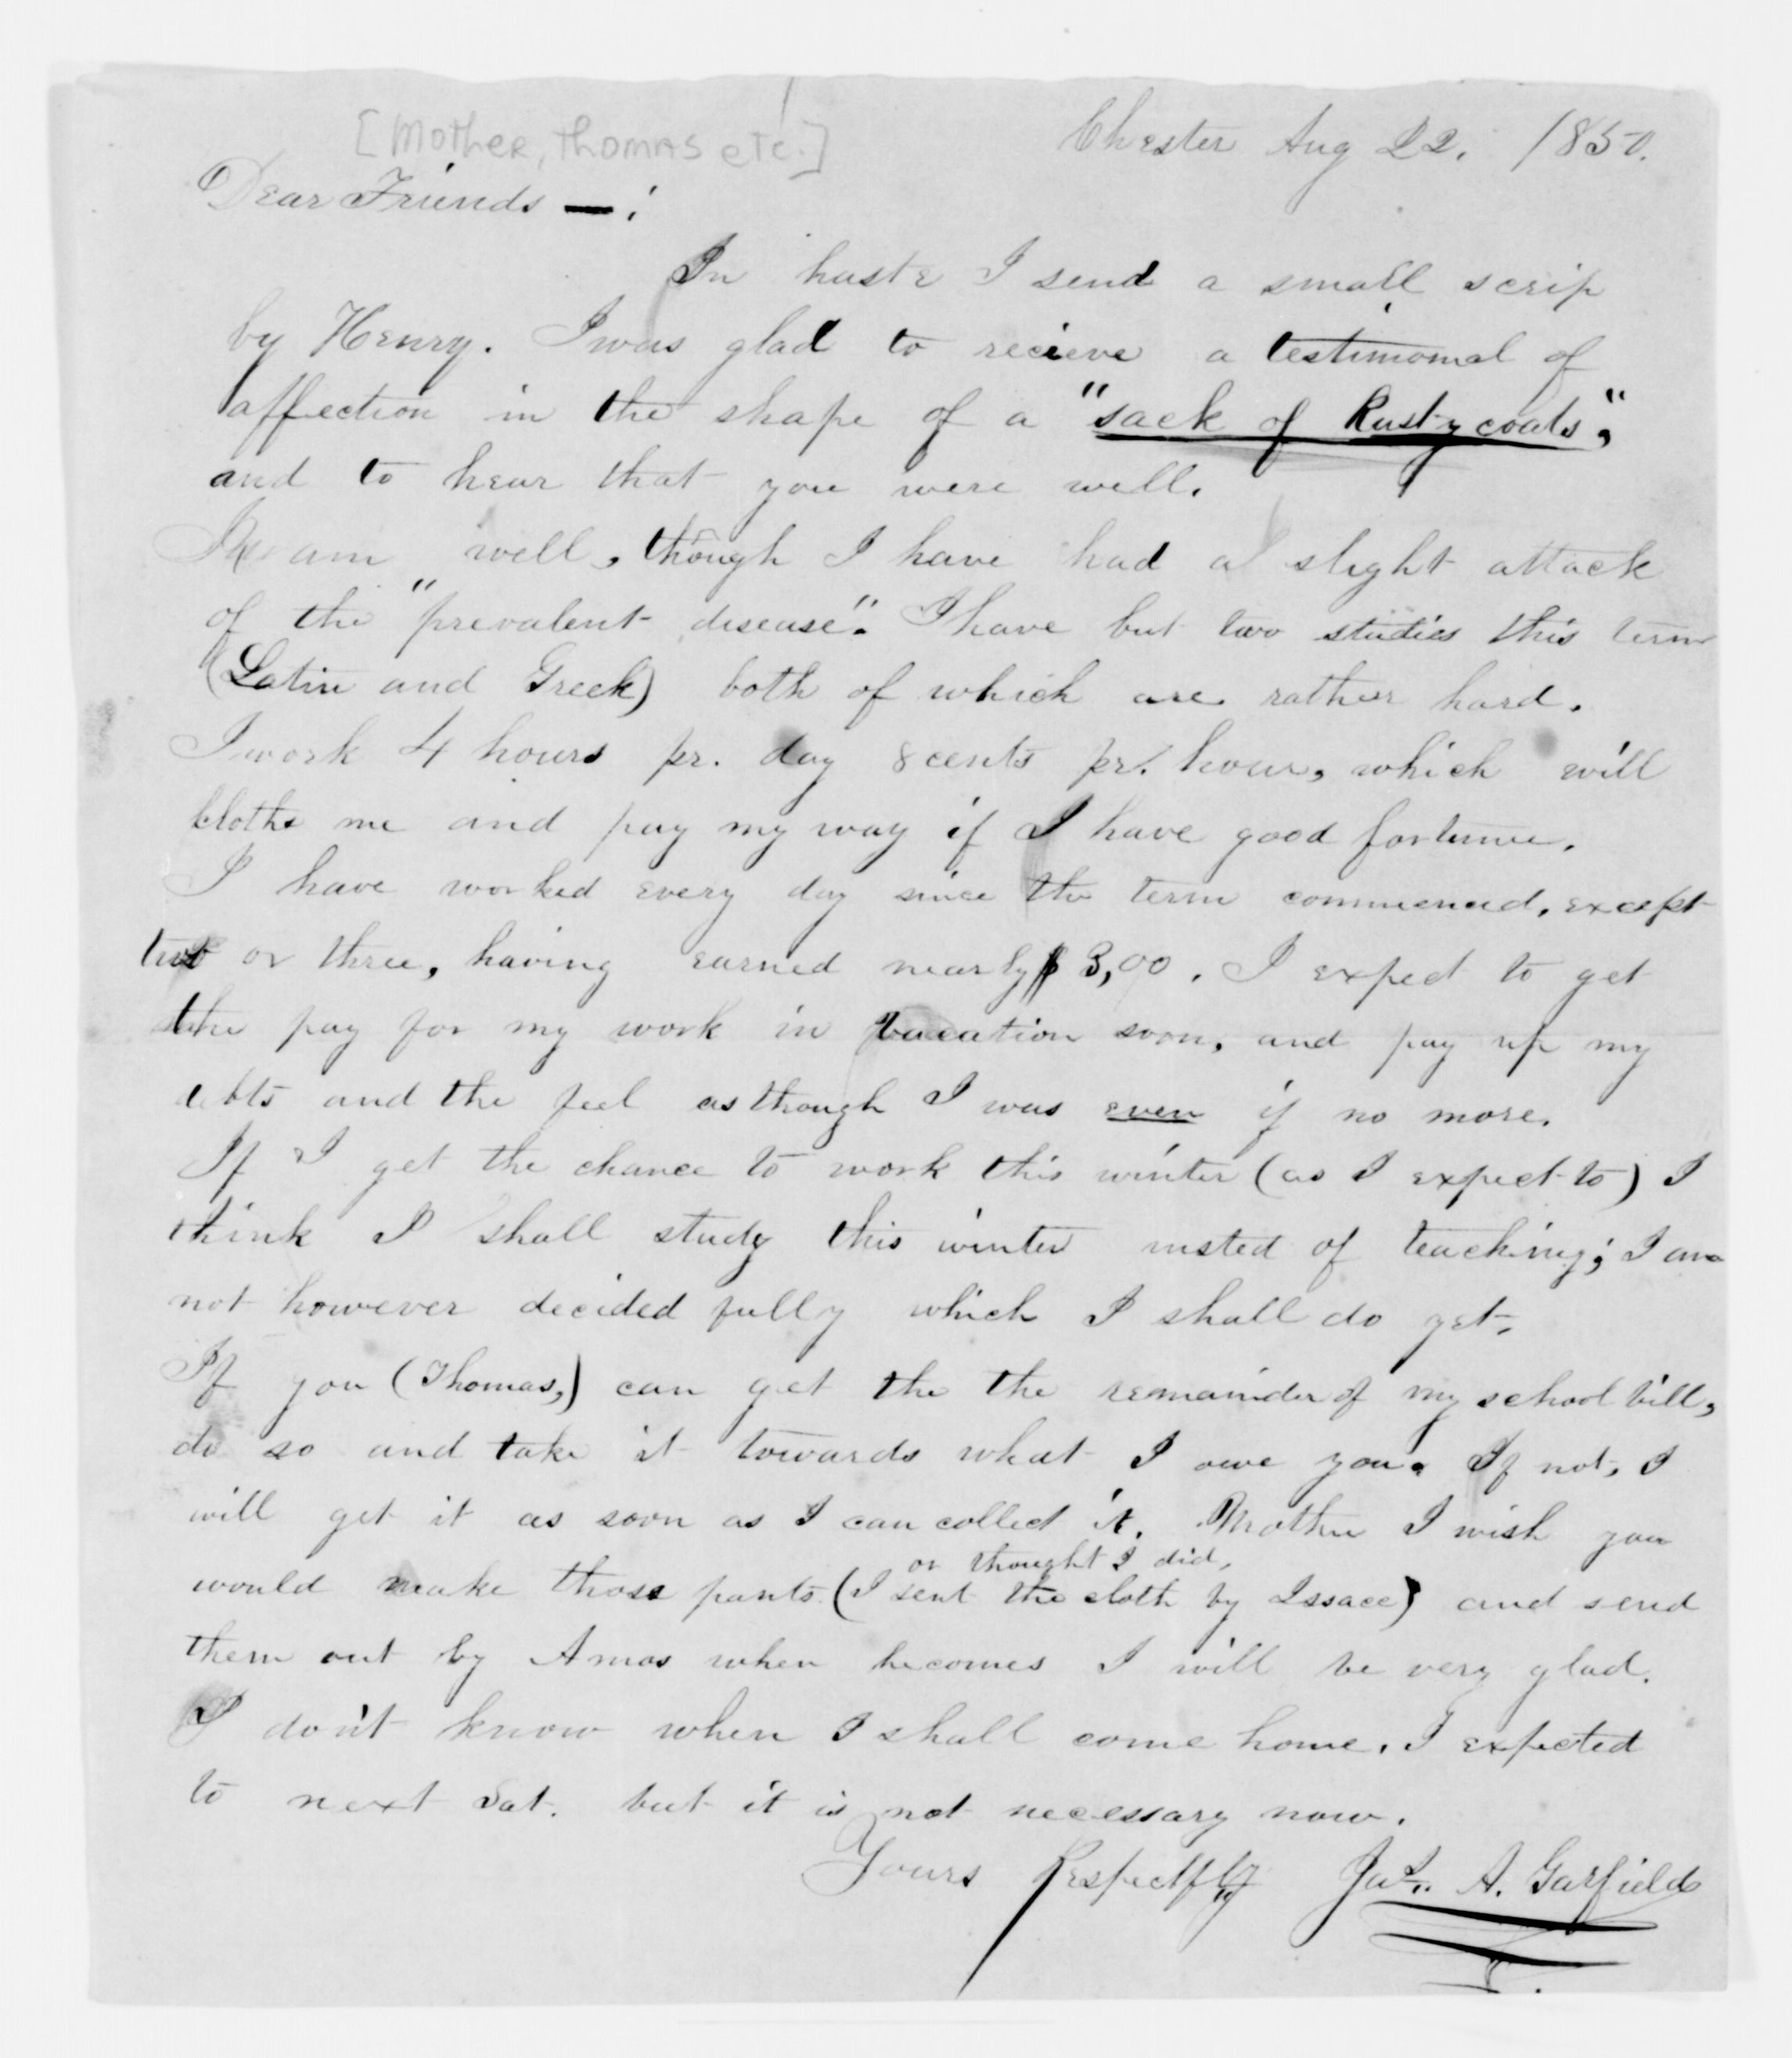 [Mother, Thomas etc.]
Chester Aug 22. 1850.
Dear Friends —:
In haste I send a small scrip
by Henry. I was glad to recieve a testimonial of
affection in the shape of a "sack of Rusty coats",
and to hear that you were well.
I am well, though I have had a slight attack
of the "prevalent disease". I have but two studies this term
(Latin and Greek) both of which are rather hard.
I work 4 hours pr. day 8 cents pr. hour, which will
clothe me and pay my way if I have good fortune.
I have worked every day since the term commenced, except
two or three, having earned nearly $3,00. I expect to get
the pay for my work in vacation soon, and pay up my
debts and the feel as though I was even if no more.
If I get the chance to work this winter (as I expect to) I
think I shall study this winter insted of teaching; I am
not however decided fully which I shall do yet.
If you (Thomas,) can get the the remainder of my school bill,
do so and take it towards what I owe you. If not, I
will get it as soon as I can collect it. Mother I wish you
or thought I did,
would make those pants (I sent the cloth by Issace) and send
them out by Amos when he comes I will be very glad.
I don't know when I shall come home. I expected
to next Sat. but it is not necessary now.
Yours Respectfly Jas. A. Garfield